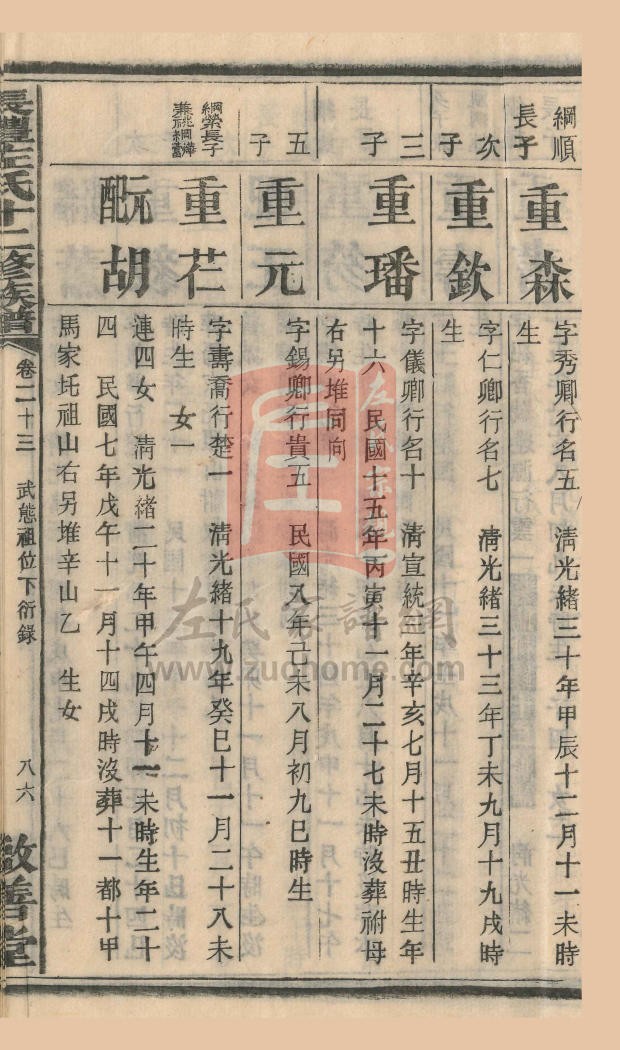 綱順
長子
重森
字秀卿行名五　清光緒三十年甲辰十二月十一未時
生
次子
重欽
字仁卿行名七　清光緒三十三年丁未九月十九戌時
生
三子
重璠
字儀卿行名十　清宣統三年辛亥七月十五丑時生年
十六　民國十五年丙寅十一月二十七未時沒葬祔母
右另堆同向
五子
重元
字錫卿行貴五　民國八年己未八月初九巳時生
綱榮長子
兼祧綱
重芢
字壽喬行楚一　清光緒十九年癸巳十一月二十八未
時生　女一
配元胡
連四女　清光緒二十年甲午四月十一未時生年二十
四　民國七年戊午十一月十四戌時沒葬十一都十甲
馬家圫祖山右另堆辛山乙　生女
左氏十二修族譜
卷二十三
武態祖位下衍錄
八六
敦善堂
左氏家譜網
www.zuohome.com
左